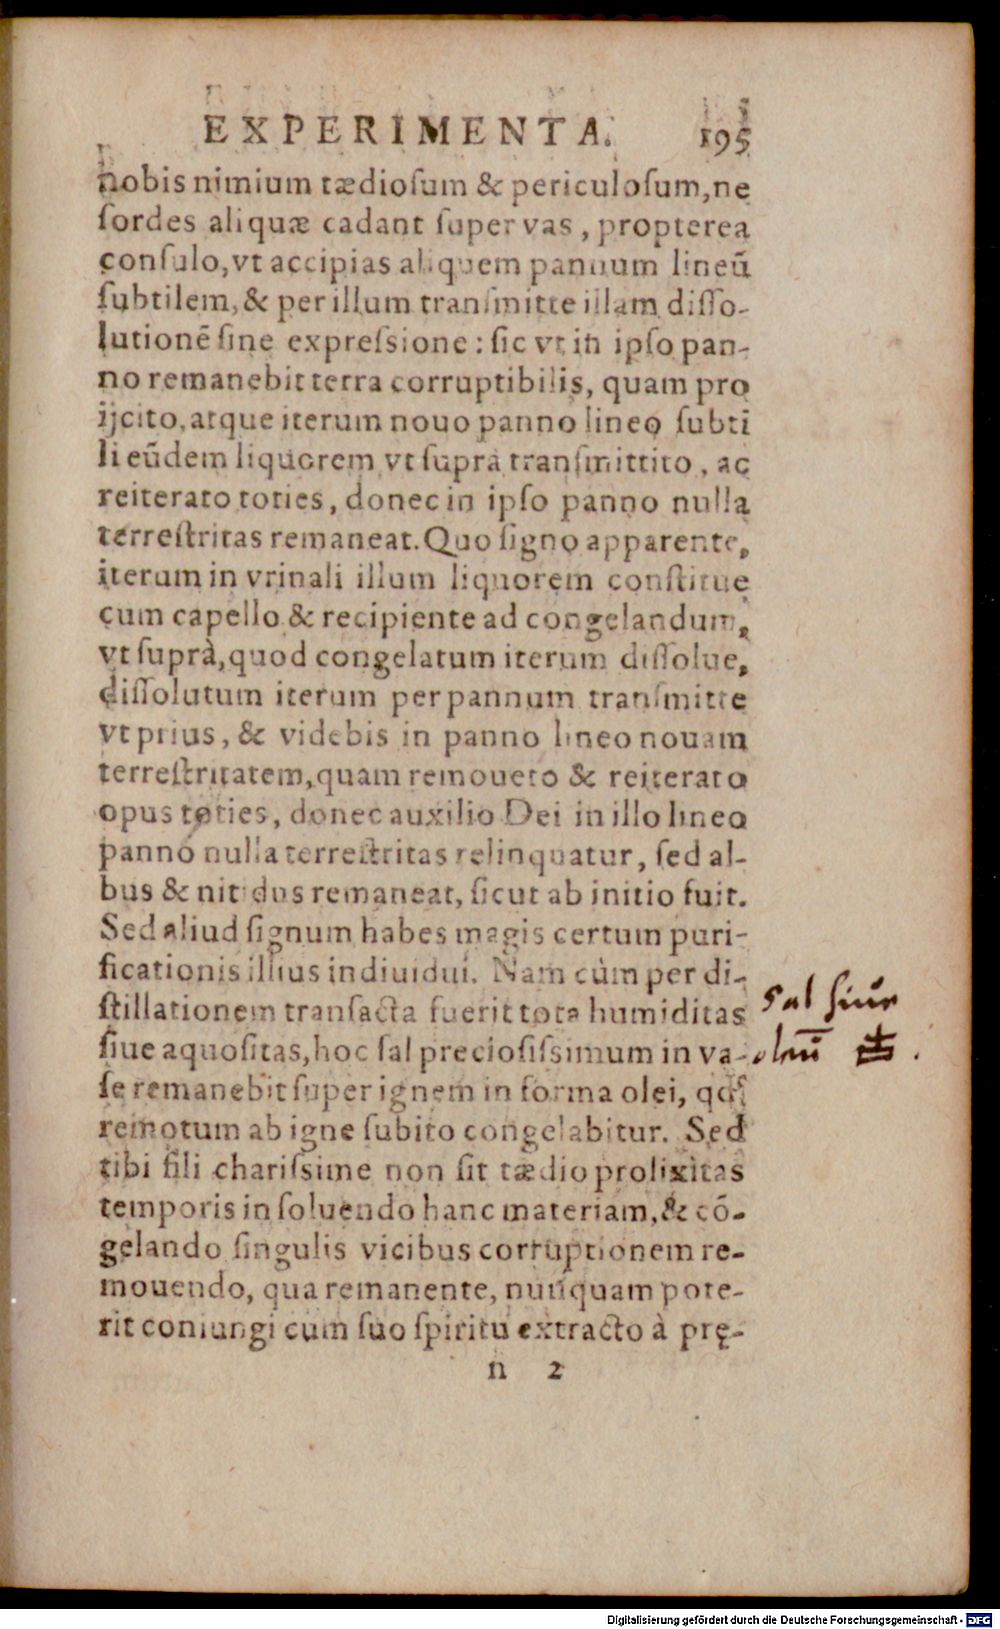 EXPERIMENTA. 195
nobis nimium tædiosum & periculosum, ne
sordes aliquæ cadant super vas, propterea
consulo, vt accipias aliquem pannum lineū
subtilem, & per illum transmitte illam disso-
lutionē sine expressione: sic vt in ipso pan-
no remanebit terra corruptibilis, quam pro
ijcito, atque iterum nouo panno lineo subti
li eūdem liquorem vt suprà transmittito, ac
reiterato toties, donec in ipso panno nulla
terrestritas remaneat. Quo signo apparente,
iterum in vrinali illum liquorem constitue
cum capello & recipiente ad congelandum,
vt suprà, quod congelatum iterum dissolue,
dissolutum iterum per pannum transmitte
vt prius, & videbis in panno lineo nouam
terrestritatem, quam remoueto & reiterato
opus toties, donec auxilio Dei in illo lineo
panno nulla terrestritas relinquatur, sed al-
bus & nitidus remaneat, sicut ab initio fuit.
Sed aliud signum habes magis certum puri-
ficationis illius indiuidui. Nam cùm per di-
stillationem transacta fuerit tota humiditas
siue aquositas, hoc sal preciosissimum in va-
se remanebit super ignem in forma olei, qđ
remotum ab igne subito congelabitur. Sed
tibi fili charissime non sit tædio prolixitas
temporis in soluendo hanc materiam, & cō-
gelando singulis vicibus corruptionem re-
mouendo, qua remanente, nunquam pote-
rit coniungi cum suo spiritu extracto à prę-
n 2
Sal siue
oleū
Digitalisierung gefördert durch die Deutsche Forschungsgemeinschaft - DFG